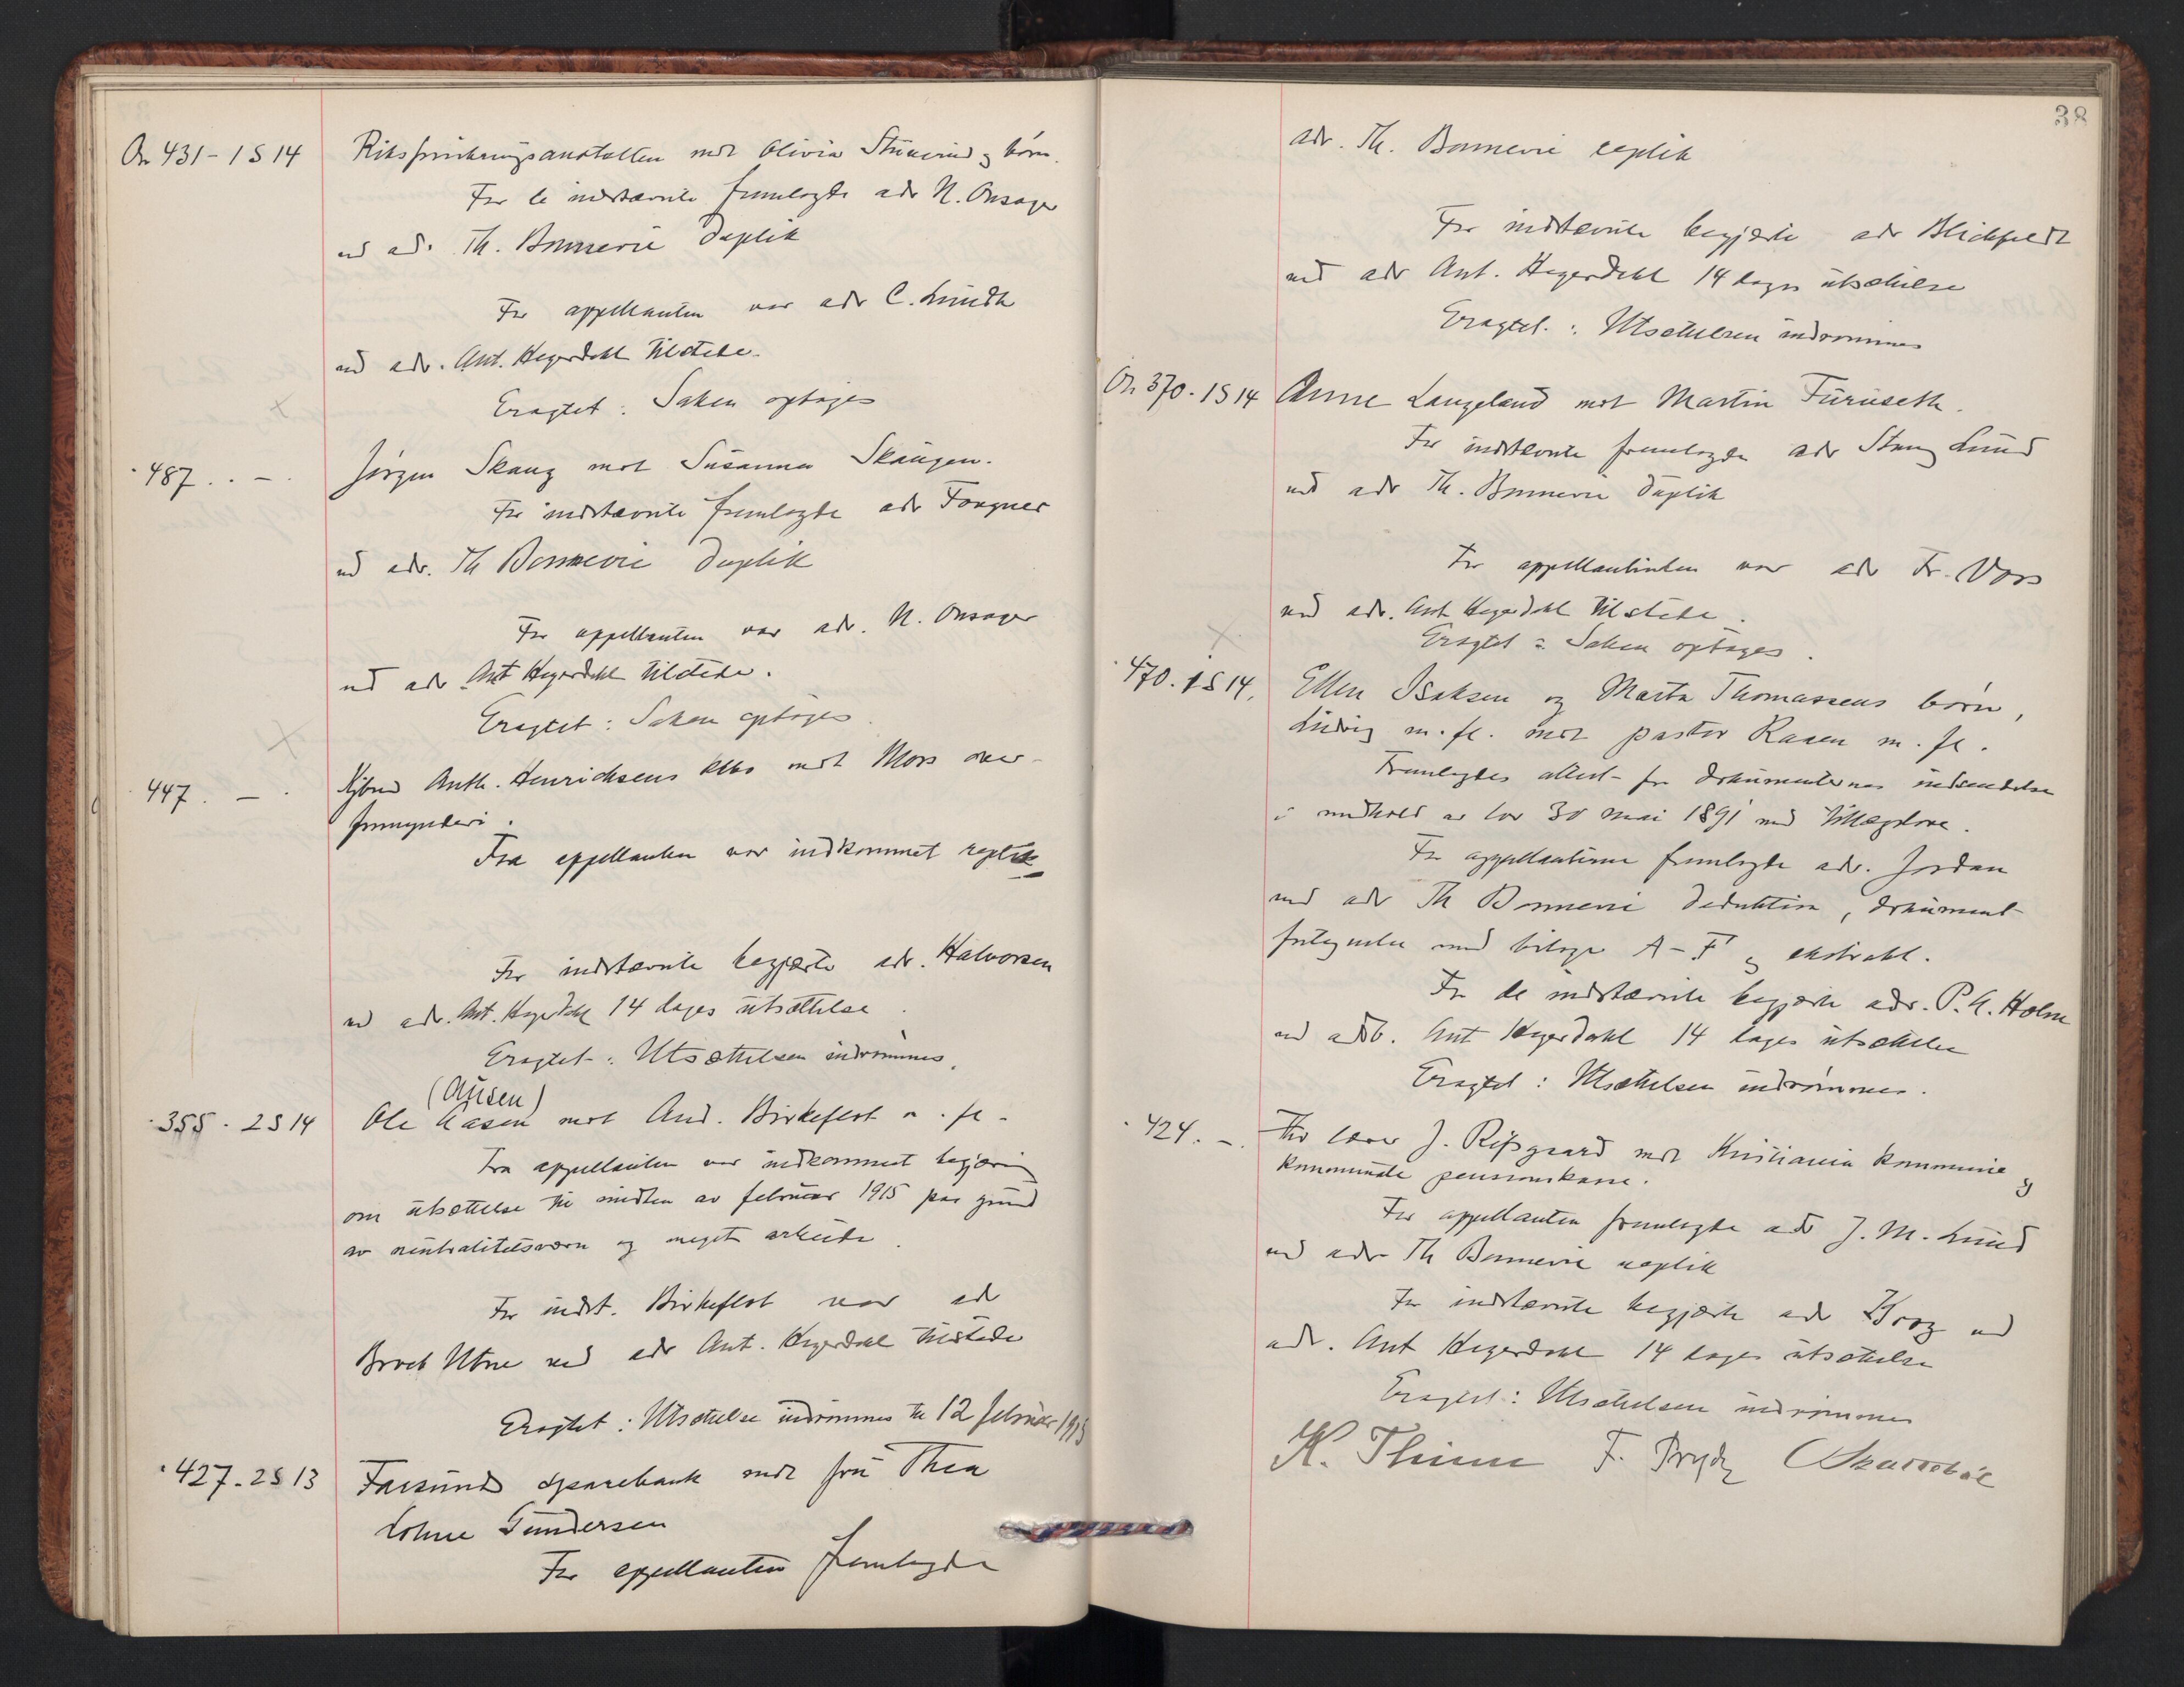 On 431 - 1 S 14 Riksforsikringsanstalten mot Olivia og børn.
For de indstevnte fremlagde adv N. Onsager
ved adv. Th. Bonnevie duplik
For appellanten var adv C. Lundh
ved adv. Ant. Hegerdahl tilstede.
Eragtet: Saken optages
487 . . - . Jørgen Skaug mot Susanna Skaugen.
For indstevnte fremlagde adv Fougner
ved adv. Th Bonnevie duplik
For appellanten var adv. N. Onsager
ved adv Ant Hegerdahl tilstede.
Eragtet: Saken optages.
447 . - . Kjøbmd Anth. Henrichsens mot Moss over-
formynderi.
Fra appellanten var indkommet replik
For indstevnte begjærte adv. Halvorsen
ved adv. Ant. Hegerdahl 14 dages utsættelse.
Eragtet: Utsættelsen indrømmes.
(Aasen)
355 . 2 S 14 Ole Aasen mot And. Birkeflot m. fl.
Fra appellanten var indkommet begjæring
om utsættelse til midten av februar 1915 paa grund
av neutralitetsværn og meget arbeide.
For indst. Birkeflot var adv
Broch Utne ved adv Ant. Hegerdahl tilstede
Eragtet: Utsættelse indrømmes til 12 februar 1915
427 . 2 S 13 Farsunds sparebank mot fru Thea
Lohne Gundersen
For appellanten fremlagde
38
adv. Th. Bonnevie replik
For indstevnte begjærte adv Blichfeldt
ved adv Ant. Hegerdahl 14 dages utsættelse
Eragtet: Utsættelsen indrømmes
On 370 . 1 S 14 Anne Langeland mot Martin Furuseth.
For indstevnte fremlagde adv Steng Lund
ved adv Th. Bonnevie duplik
For appellantinden var adv Fr. Voss
ved adv. Ant Hegerdahl tilstede.
Eragtet: Saken optages.
470 . 1 S 14. Ellen Isaksen og Marta Thomassens børn,
Ludvig m. fl. mot pastor Raaen m. fl.
Fremlagdes attest for dokumenternes indsendelse
i medhold av lov 30 mai 1891 med tillægslove.
For appellanterne fremlagde adv. Jordan
ved adv Th Bonnevie deduktion, dokument-
fortegnelse med bilage A - F og ekstrakt.
For de indstevnte begjærte adv. P. A. Holm
ved adv. Ant Hegerdahl 14 dages utsættelse
Eragtet: Utsættelsen indrømmes.
424 . - . Fhv lærer J. Risgaard mot Kristiania kommune og
kommunale pensionskasse.
For appellanten fremlagde adv J. M. Lund
ved adv Th Bonnevie replik
For indstevnte begjærte adv Krog ved
adv. Ant Hegerdahl 14 dages utsættelse
Eragtet: Utsættelsen indrømmes
K. Thinn F. Prydz